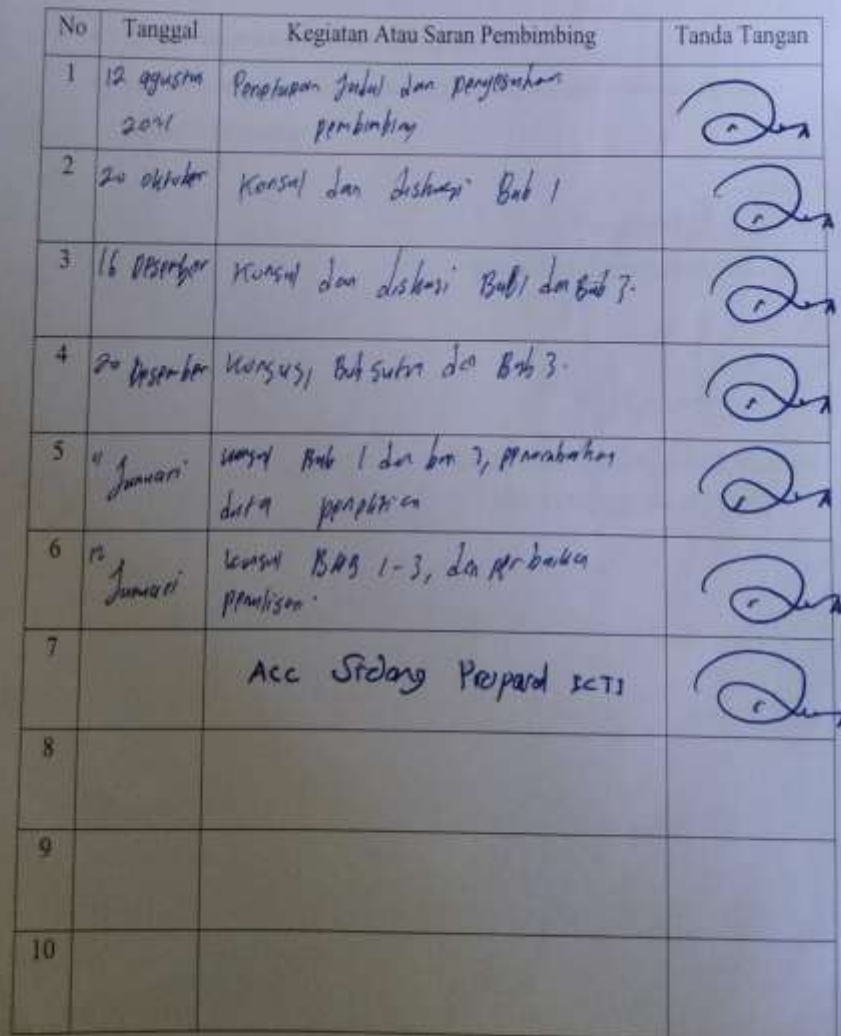 No Tanggal Kegiatan Atau Saran Pembimbing Tanda Tangan
1 12 agustus Penetapan Judul dan pengesahan
2021 pembimbing
2 20 oktober Konsul dan diskusi Bab 1
3 16 Desember Konsul dan diskusi Bab 1 dan Bab 3.
4 20 Desember dan Bab 3.
5 11 Januari konsul Bab 1 dan 3, penambahan
data penelitian
6 12 Januari konsul BAB 1-3, dan perbaikan
penulisan.
7 Acc Sidang Proposal
8
9
10